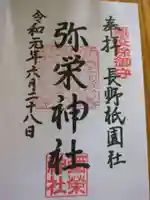 奉拝 長野祇園社
弥栄神社
令和元年六月二十八日